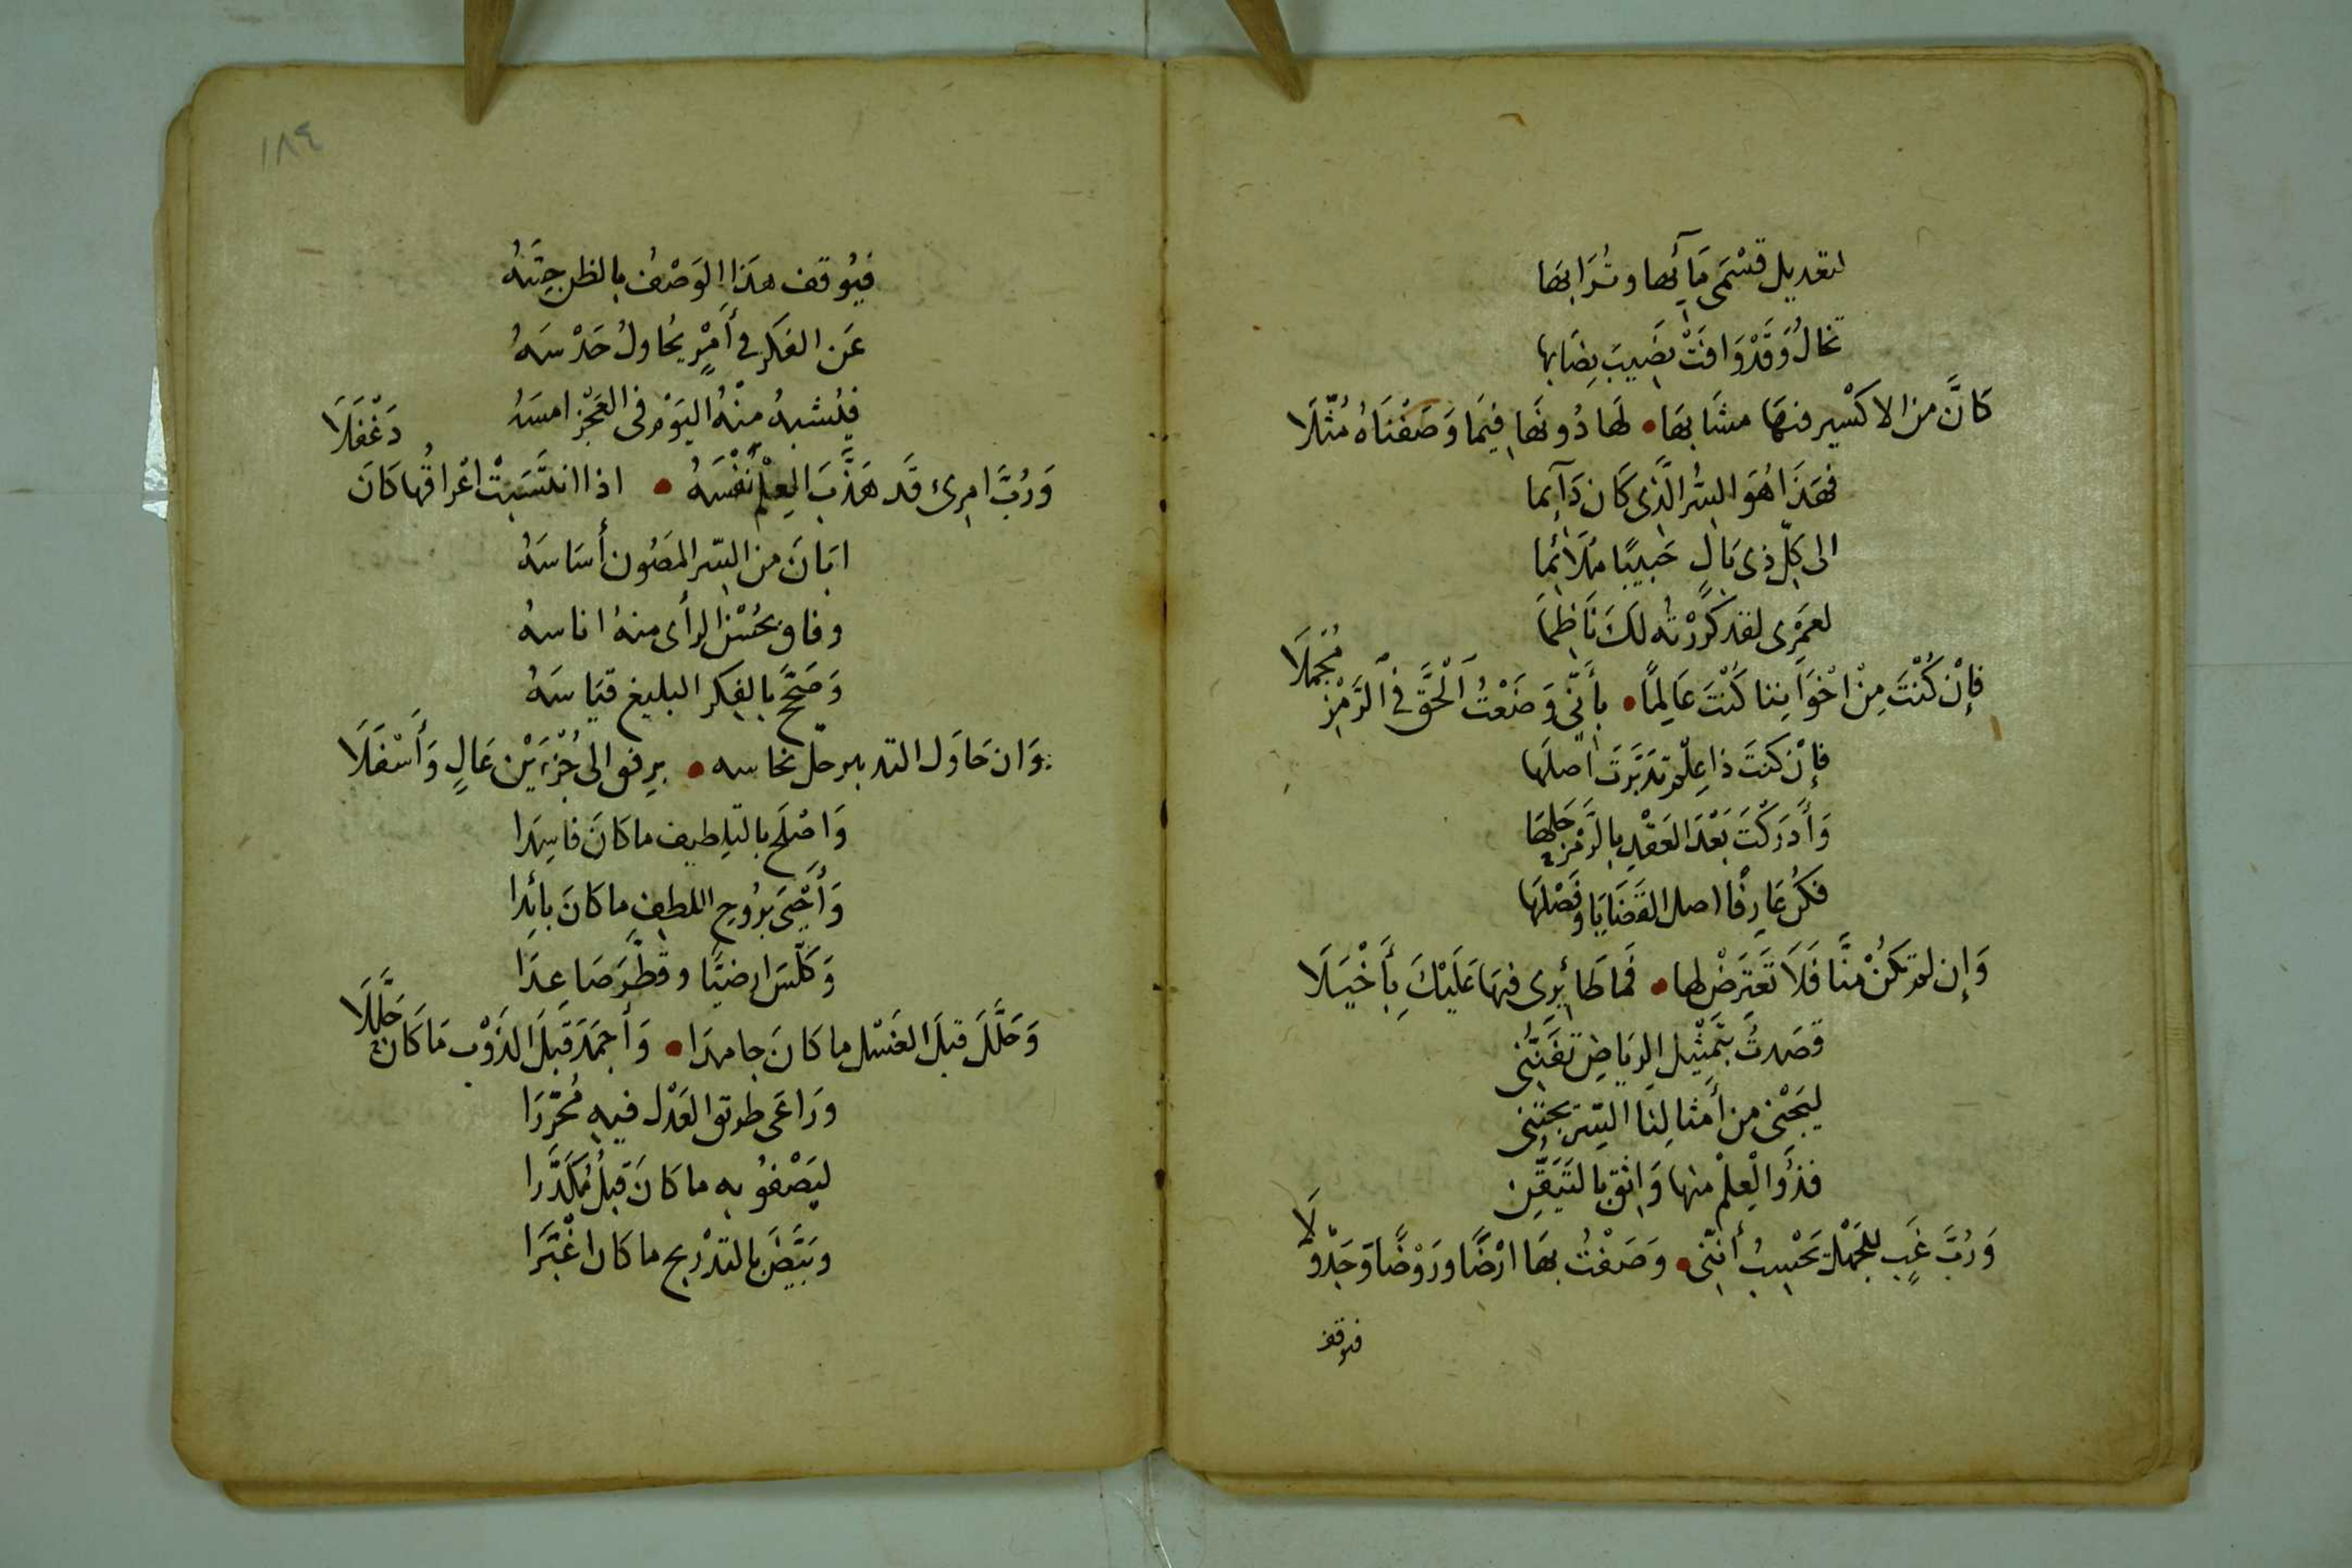 لتعديل قسْمَى مَآئها وتُرَابهَا
تخالُ وَقَدْ وَافَتْ بصَيبَ رِضَابها
كَانَّ من الاكسْير فيهَا مشَابهَا • لهَا دُونهَا فِيَما وَصَفْنَاهُ مُثّلَا
فهَذَا هُوَ السِّر الَّذِى كَان دَآئما
الى كلّ ذى بَالٍ حَبيبًا مُلَائما
لعَمْرِى لقد كَرَّرْتُه لَكَ نَاظِمًا
فإنْ كُنْتَ مِنْ اخْوَاننا كُنْتَ عَالِمًا • بأَنّي وَضَعْتُ اَلْحَقَّ فى اَلرَمْزِ مُجْمَلَا
فإنْ كنتَ ذا عِلم تدَبَّرتَ اصلَها
وَأَدرَكْتَ بَعْدَ العَقْدِ بالرَّمْزِ حَلهَا
فكُن عَارِفًا اصل القَضَايَا وفَصْلَهَا
وَإِن لم تَكنْ منَّا فَلَا تَعْتَرِضْ لها • فمَا طَائرِى فيهَا عَلَيْكَ بِأَخْيَلَا
قصَدتُ بتَمْثيل الرِيَاضِ تفَنّني
ليَجْنى من أَمثالِنَا السِّرّ مجتنى
فذُو الْعِلْم منها وَاثق بالتَيَقُّنِ
وَرُبَّ غَبٍي للجَهْل يَحْسِبُ أَنَّنى • وَصَفْتُ بهَا ارْضًا ورَوْضًا وَجَدْوَلَا
فيوقف
١٨٤
فيُوقف هذَا الوَصْفُ بالظن حِسَّهُ
عَن الفكر في أَمْرٍ يُحاولُ حَدْسَهُ
فيُشبهُ منْهُ اليَوْم فى العَجْزِ امسَهُ
وَرُبَّ امرِئ قَد هَذَّبَ العِلْم نَفْسَهُ • اذا انتَسَبتْ اعْراقُها كَانَ دَغْفَلَا
ابَانَ من السّر المَصُون أَسَاسَهُ
وفاق بحُسْن الرأى منهُ اناسهُ
وَصَحَّ بالفكر البليغ قيَاسَهُ
وَان حَاوَل التدبير حلّ نحاسه • برِفق الى جُزْءَيْن عَالٍ وَأَسْفَلَا
وَاصْلَح بالتلطيف ما كَانَ فاسِدا
وَأَحْيَى برُوحِ اللطفِ ما كَانَ بائدا
وَكَلّسَ ارضيًّا وقَطَّرَ صَاعِدَا
وَحَلَّلَ قبلَ الغَسْل ما كَانَ جامدَا • وَأَجمَدَ قَبْلَ الذَوْب مَا كَان حَلَّلَا
ورَاعَى طريق العَدْل فيه مُحَرَّرَا
ليَصْفُو به ما كَانَ قبلُ مُكَدَّرا
وبَيَّضَ بالتدْريج ما كان اغْبَرَا